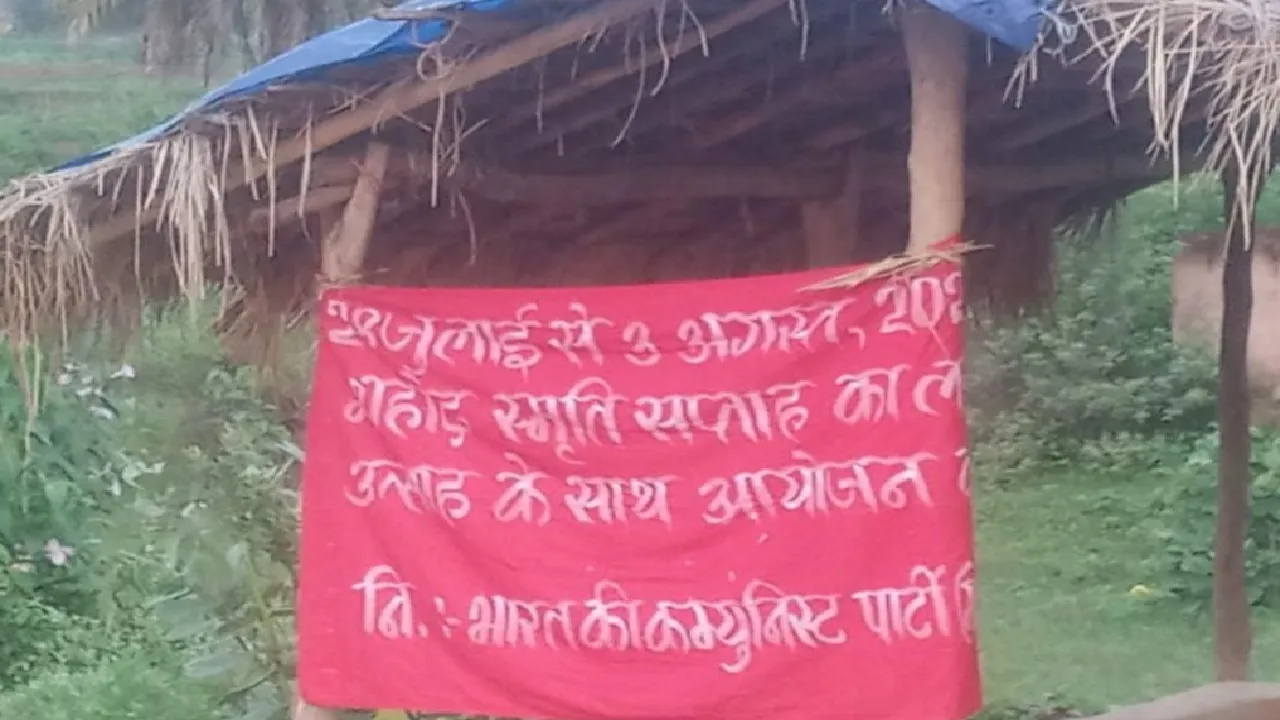 28 जुलाई से 3 अगस्त, 202
शहीद स्मृति सप्ताह का
उत्साह के साथ आयोजन
नि. :- भारत की कम्युनिस्ट पार्टी